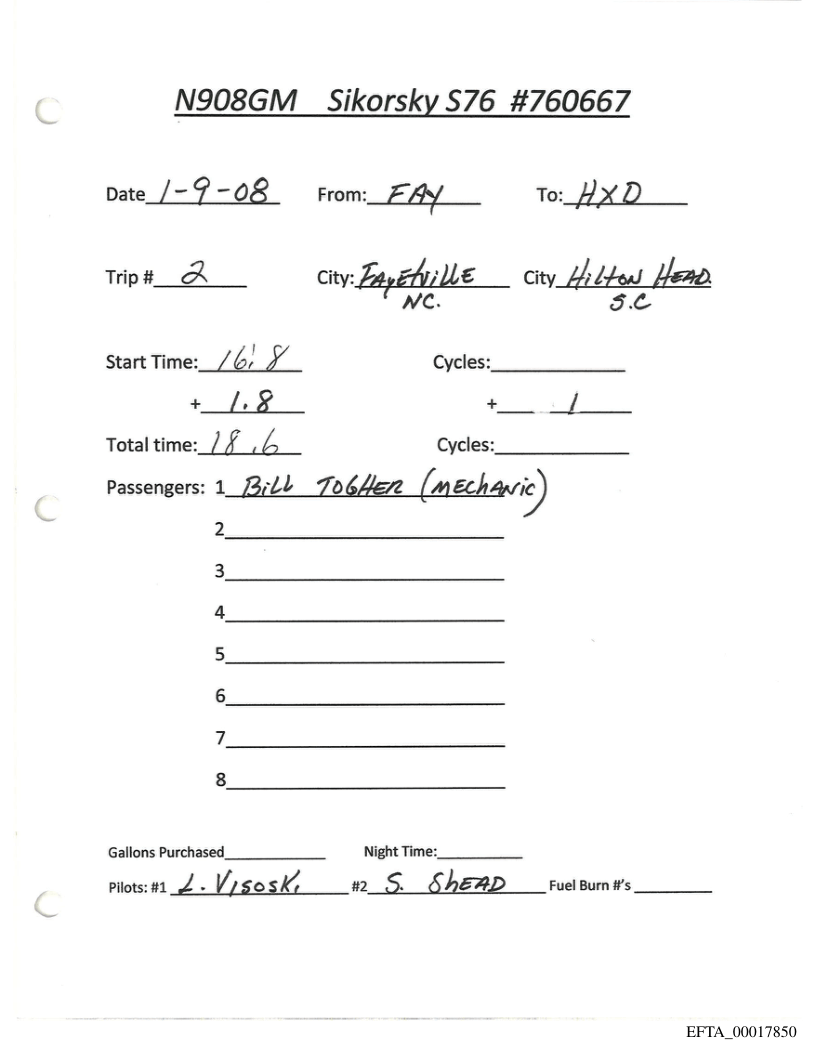 N908GM Sikorsky S76 #760667
Date 1-9-08 From: FAY To: HXD
Trip # 2 City: FAyEtvillE City HiltoN HEAD.
NC. S.C
Start Time: 16.8 Cycles:
+ 1.8 + 1
Total time: 18.6 Cycles:
Passengers: 1 Bill TOGHER (MEchANic)
2
3
4
5
6
7
8
Gallons Purchased Night Time:
Pilots: #1 L. Visoski #2 S. ShEAD Fuel Burn #'s
EFTA_00017850